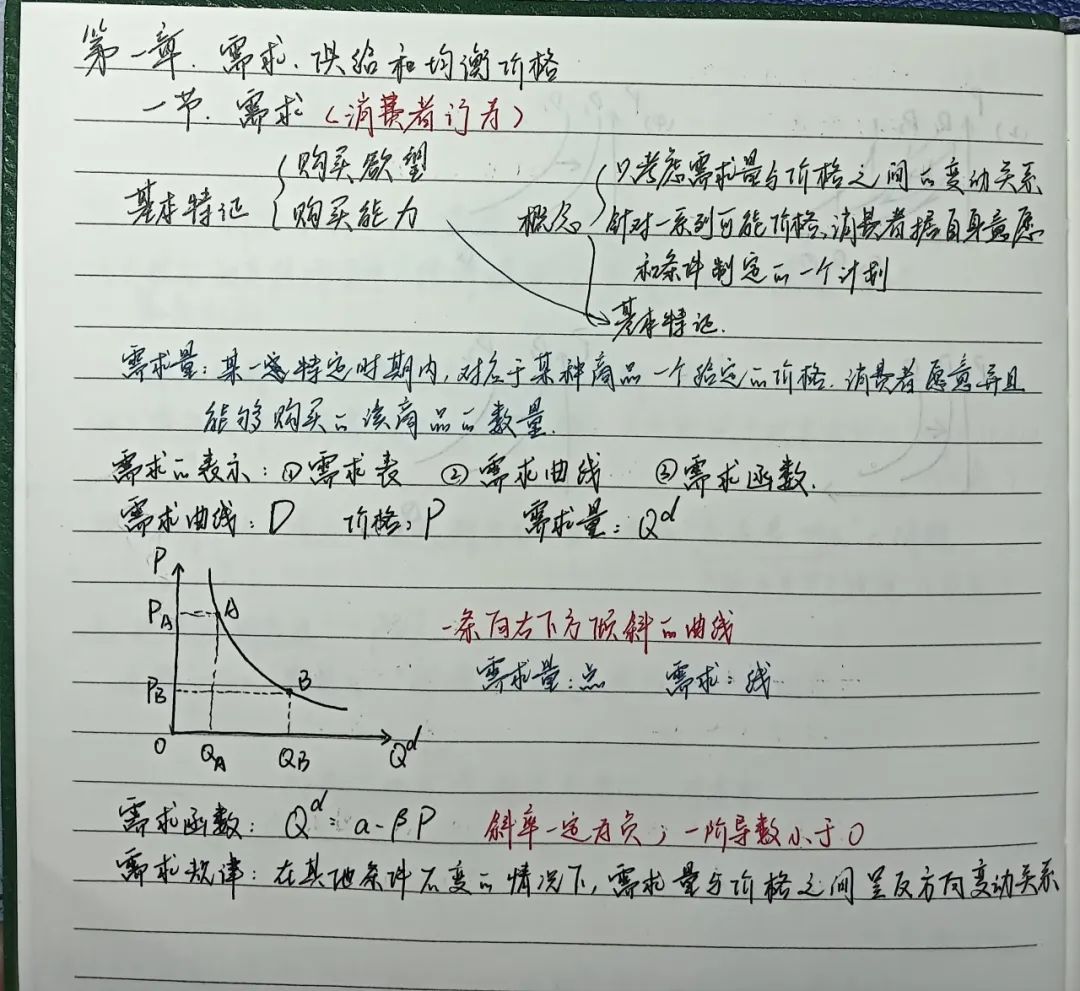 第一章. 需求、供给和均衡价格
一节. 需求(消费者行为)
基本特证 { 购买欲望
购买能力
概念 { 只考虑需求量与价格之间的变动关系
针对一系列可能价格、消费者据自身意愿
和条件制定的一个计划
基本特证.
需求量:某一 特定时期内,对应于某种商品一个给定的价格.消费者愿意并且
能够购买的该商品的数量.
需求的表示:①需求表 ②需求曲线 ③需求函数.
需求曲线:D 价格:P 需求量:Q^d
P
P_A A
P_B B
O Q_A Q_B Q^d
一条向右下方倾斜的曲线
需求量:点 需求:线
需求函数: Q^d = α-βP 斜率一定为负;一阶导数小于0
需求规律:在其他条件不变的情况下,需求量与价格之间呈反方向变动关系